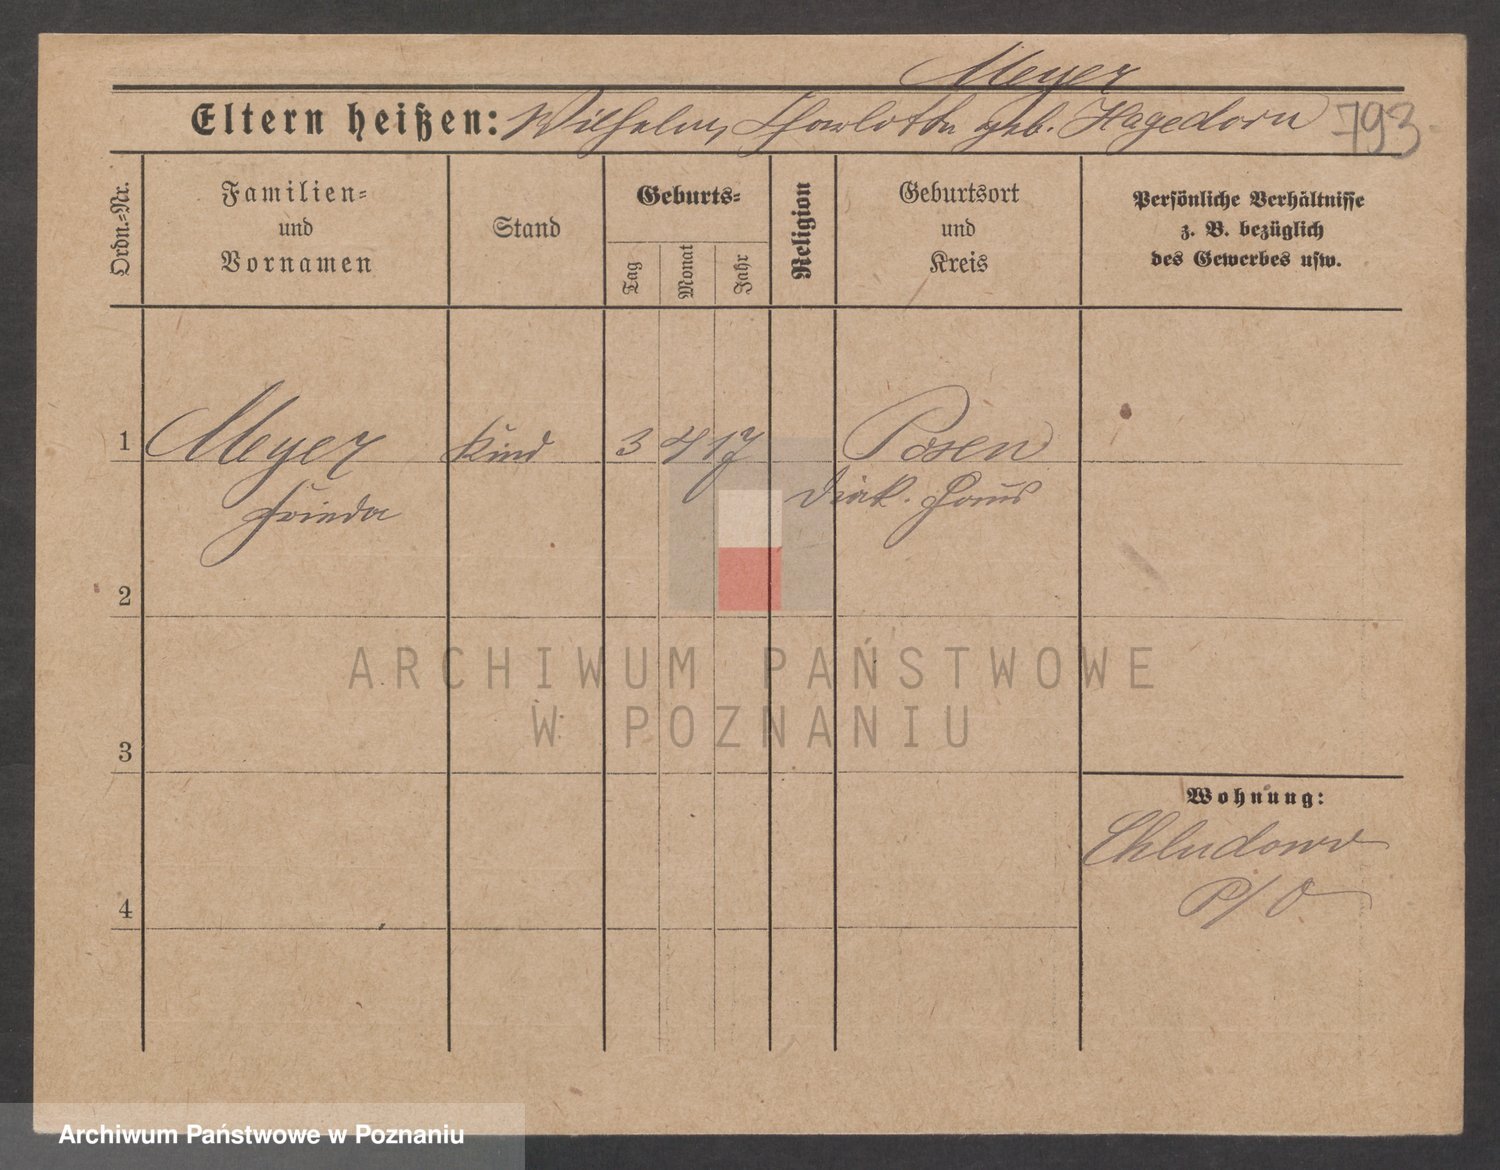 Meyer
Eltern heißen: Wilhelm, Charlotte geb. Hagedorn 793
Ordn.=Nr.
Familien=
und
Vornamen
Stand
Geburts=
Tag
Monat
Jahr
Religion
Geburtsort
und
Kreis
Persönliche Verhältnisse
z. B. bezüglich
des Gewerbes usw.
1 Meyer Kind 3 4 17 Posen
Frieda Diak. Haus
2
3
4
Wohnung:
Chludowo
P/O
ARCHIWUM PAŃSTWOWE
W POZNANIU
Archiwum Państwowe w Poznaniu